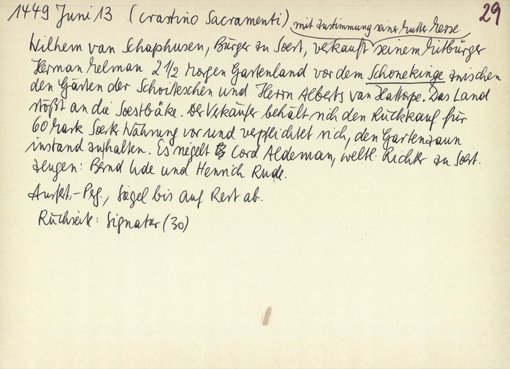 1449 Juni 13 (crastino Sacramenti) mit Zustimmung seiner Mutter
29
Wilhem van Schaphusen, Bürger zu Soest, verkauft seinem Mitbürger
Herman Melman 2 1/2 Morgen Gartenland vor dem Schonekinge zwischen
den Gärten der Scholteschen und Herrn Alberts van Hattorpe. Das Land
stößt an die Soestbäke. Der Verkäufer behält sich den Rückkauf für
60 Mark Soest. Währung vor und verpflichtet sich, den Gartenzaun
instand zuhalten. Es siegelt Cord Aldeman, weltl. Richter zu Soest.
Zeugen: Bernd Lude und Henrich Rude.
Ausf.-Pg., Siegel bis auf Rest ab.
Rückseite: Signatur (30)